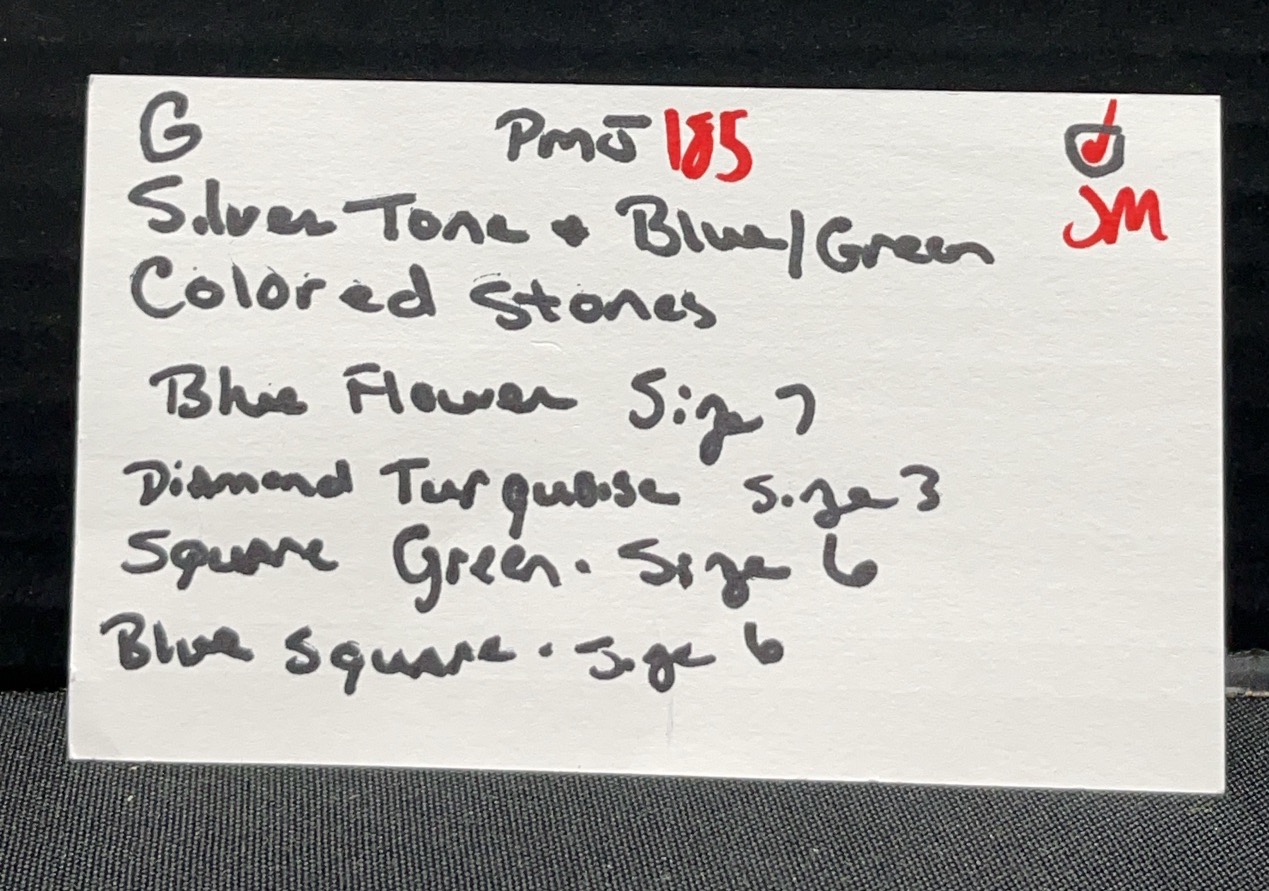 G PMJ 185
JM
Silver Tone + Blue/Green
Colored Stones
Blue Flower Size 7
Diamond Turquoise Size 3
Square Green. Size 6
Blue Square. Size 6